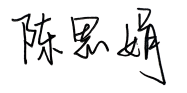 陈思娟